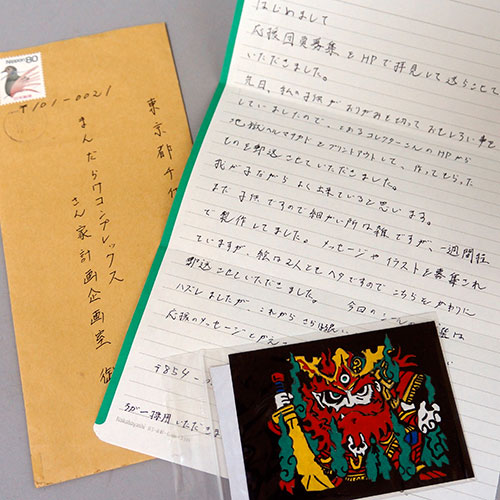 Nippon 80
〒101-0021
東京都千代
まんだらけコンプレックス
さん家計画企画室 御
はじめまして
応援団員募集をHPで拝見して送らことて
いただきました。
先日、私の子供がおりがみを切っておもしろい事を
していましたので、とあるコレクターさんのHPから
地獄ヘルマガドをプリントアウトして、作ってもらった
ものを郵送ことていただきました。
我が子ながらよく出来ていると思います。
まだ子供ですので細かい所は雑ですが、一週間程
で製作してました。メッセージやイラストを募集され
ていますが、絵は2人ともヘタですのでこちらをかわりに
郵送ことしていただきました。今回の
ハズレましたが、これから
応援のメッセージとかえ
〒854-
採用いただきま